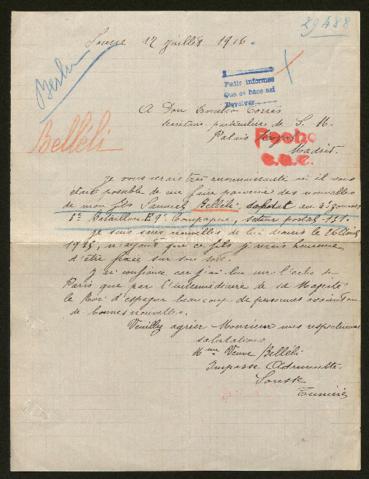 29488
Sousse 12 juillet 1916.
Berlin
Pedir informes
Que se hace así
Devolver
A Don Emilio Torrès
Secrétaire particulier de S. M.
Palais Royal
Madrid.
Fecho
Belléli
Je vous serais très reconnaissante si il vous
était possible de me faire parvenir des nouvelles
de mon fils Samuel Belléli, au 3e
5e Bataillon E 9e Compagnie, secteur postal 131.
Je suis sans nouvelles de lui depuis le
1915, n'ayant que ce fils je serais heureuse
d'être fixée sur son sort.
J'ai confiance car j'ai lu sur l'écho de
Paris que par l'intermédiaire de sa Majesté
le Roi d'Espagne beaucoup de personnes avaient
de bonnes nouvelles.
Veuillez agréer Monsieur mes respectueuses
salutations
Mme Veuve Belléli
Impasse
Sousse
Tunisie